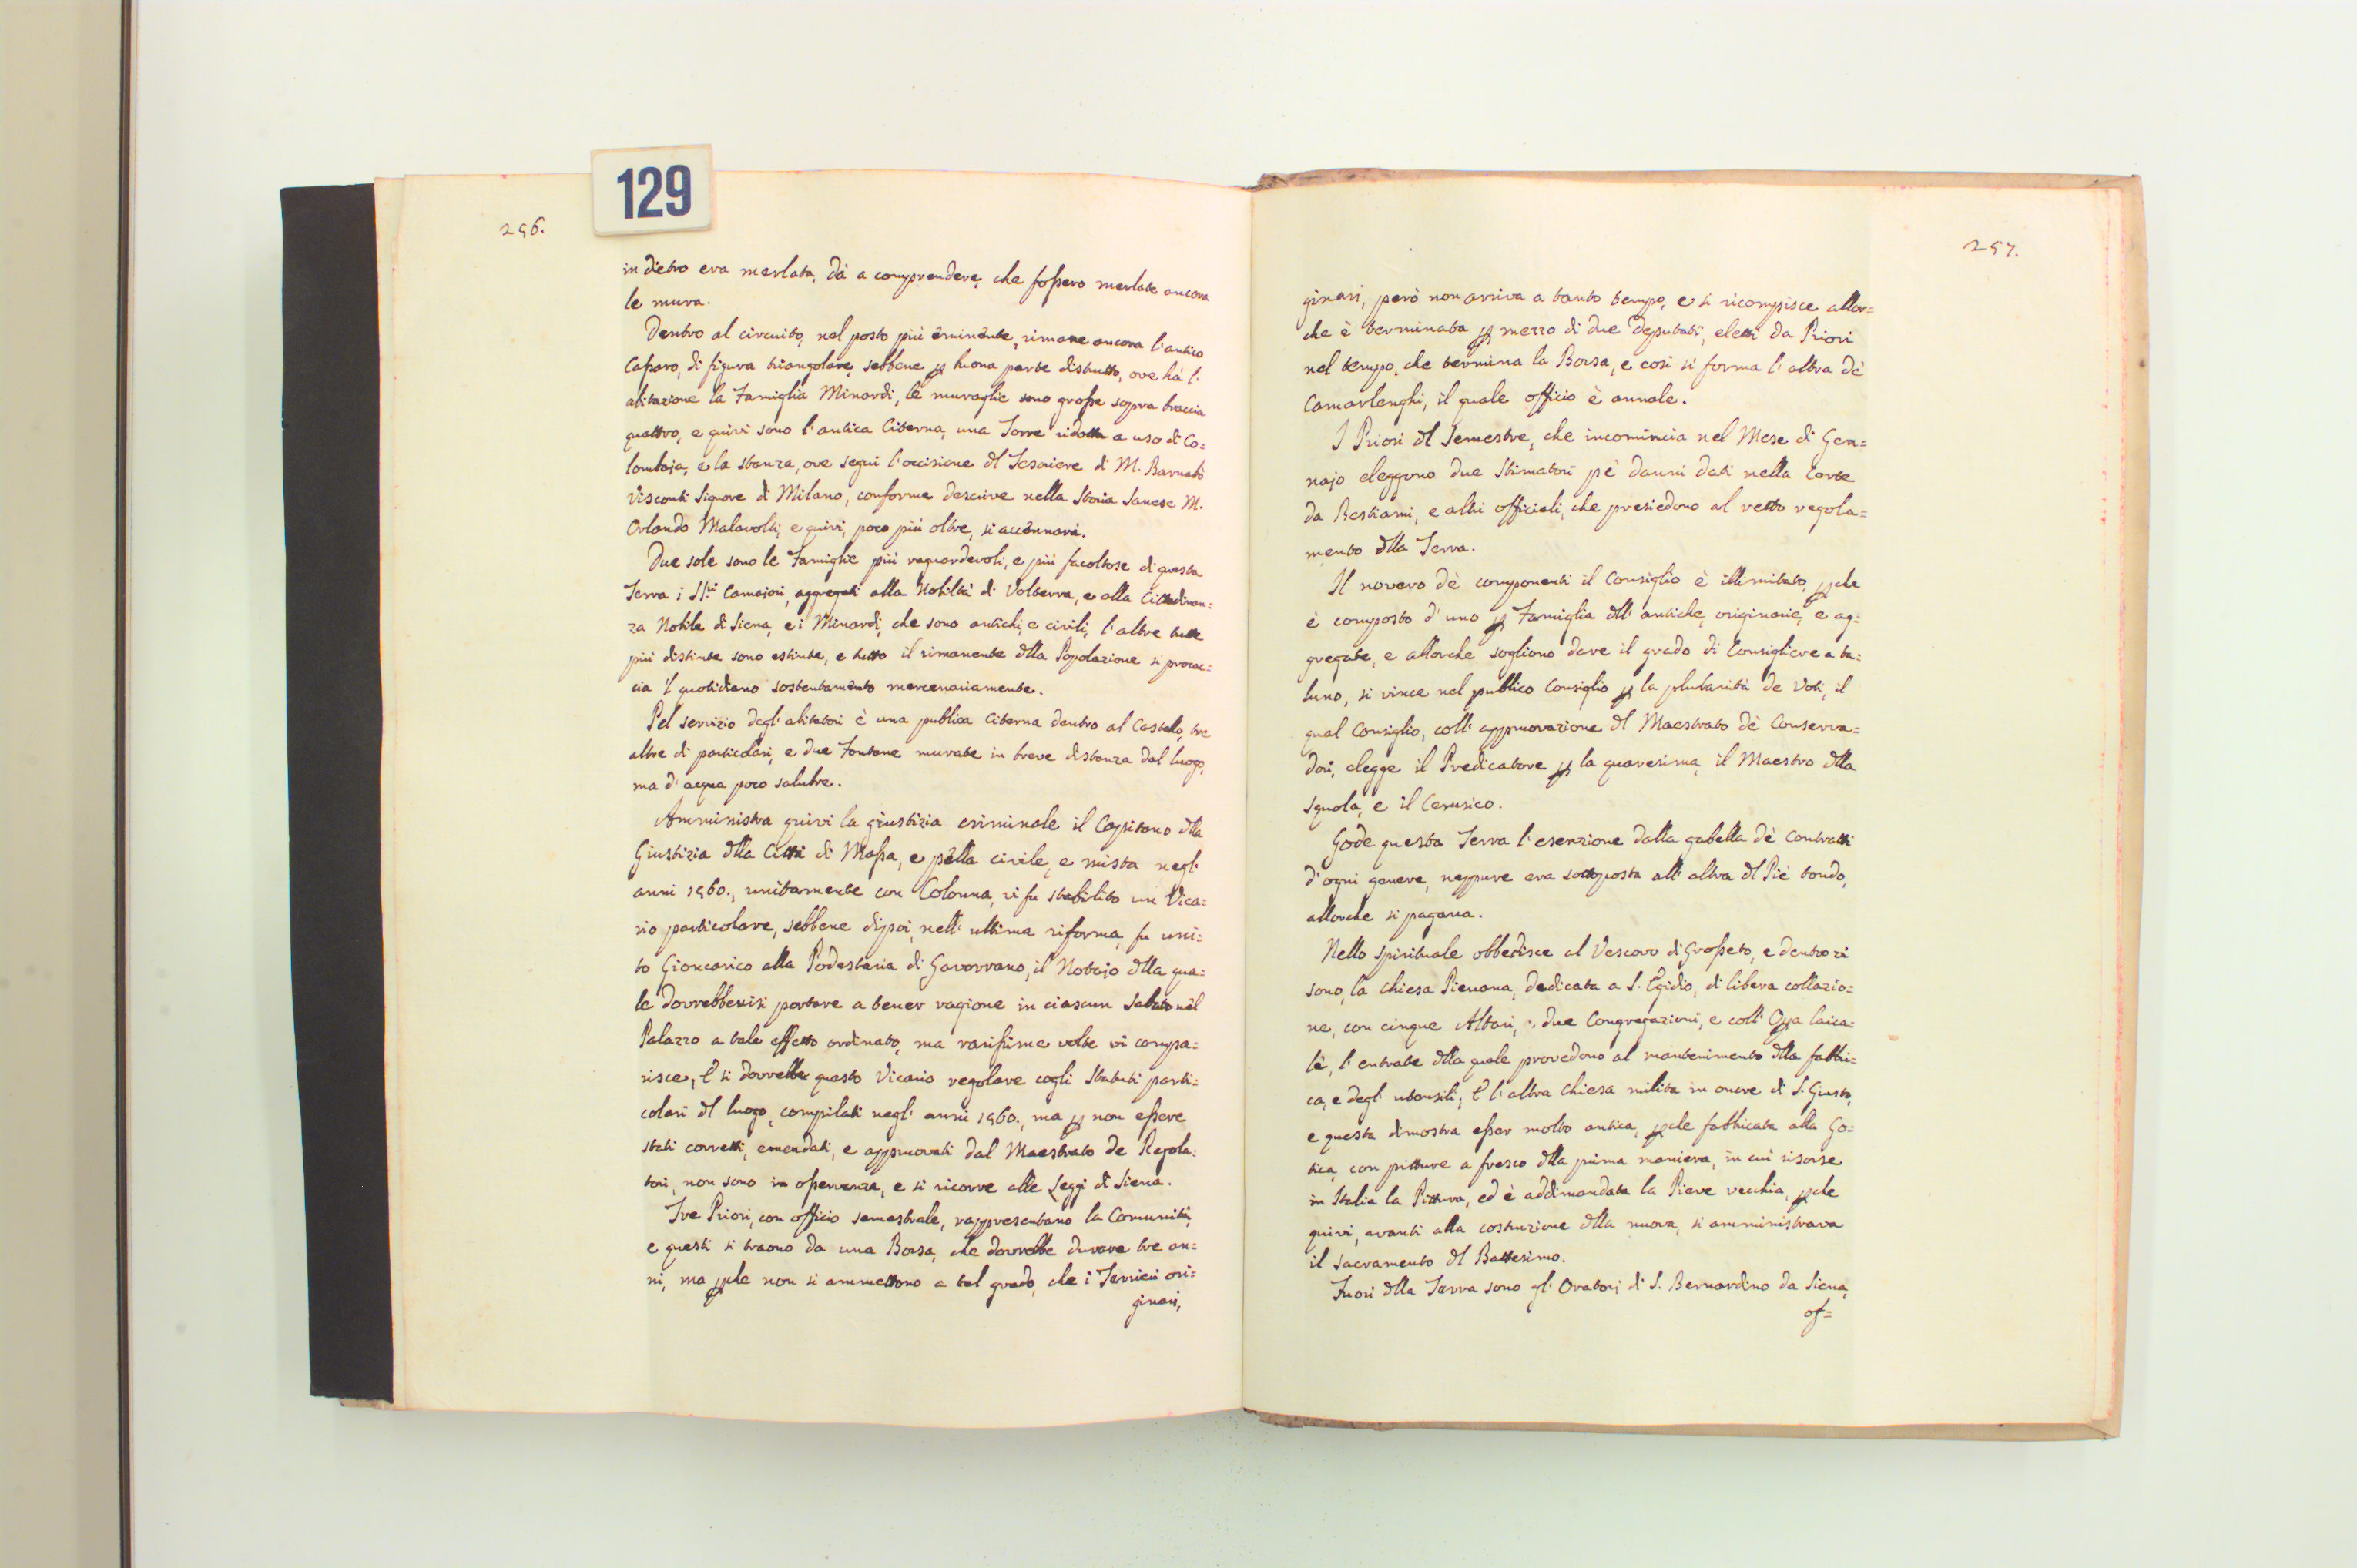 129
256.
in dietro era merlata, dà a comprendere, che fossero merlate ancora
le mura.
Dentro al circuito, nel posto più eminente, rimane ancora l'antico
Cassaro, di figura triangolare, sebbene p buona parte distrutto, ove hà l'
abitazione la Famiglia Minordi, le muraglie sono grosse sopra braccia
quattro, e quivi sono l'antica Citerna, una Torre ridotta a uso di Co=
lombaja, e la stanza, ove seguì l'occisione dl Tesoriere di M. Barnabò
Visconti Signore di Milano, conforme descrive nella Storia Sanese M.
Orlando Malavolti, e quivi, poco più oltre, si accennarà.
Due sole sono le Famiglie più raguardevoli, e più facoltose di questa
Terra i SS.ri Camajori, aggregati alla Nobiltà di Volterra, e alla Cittadinan=
za Nobile di Siena, e i Minordi, che sono antichi, e civili, l'altre tutte
più distinte sono estinte, e tutto il rimanente dlla Popolazione si procac=
cia il quotidiano sostentamento mercenariamente.
Pel servizio degl'abitatori è una publica Citerna dentro al Castello, tre
altre di particolari, e due Fontane murate in breve distanza dal luogo,
ma d'acqua poco salubre.
Amministra quivi la giustizia criminale il Capitano dlla
Giustizia dlla Città di Massa, e pella civile, e mista negl'
anni 1560., unitamente con Colonna, vi fu stabilito un Vica=
rio particolare, sebbene dipoi, nell'ultima riforma, fu uni=
to Gioncarico alla Podestaria di Gavorrano, il Notajo dlla qua=
le dovrebbevisi portare a tener ragione in ciascun Sabato nel
Palazzo a tale effetto ordinato, ma rarissime volte vi compa=
risce, E si dovrebbe questo Vicario regolare cogli Statuti parti=
colari dl luogo, compilati negl'anni 1560., ma p non essere
stati corretti, emendati, e appruovati dal Maestrato de Regola=
tori, non sono in osservanza, e si ricorre alle Leggi di Siena.
Tre Priori, con officio semestrale, rappresentano la Comunità,
e questi si traono da una Borsa, che dovrebbe durare tre an=
ni, ma pche non si ammettono a tal grado, che i Terrieri ori=
ginarj,
257.
ginarj, però non arriva a tanto tempo, e si ricompisce allor=
che è terminata p mezzo di due Deputati, eletti da Priori
nel tempo, che termina la Borsa, e così si forma l'altra dè
Camarlenghi, il quale officio è annale.
I Priori dl Semestre, che incomincia nel Mese di Gen=
najo eleggono due Stimatori pè danni dati nella Corte
da Bestiami, e altri officiali, che presiedono al retto regola=
mento dlla Terra.
Il novero dè componenti il Consiglio è illimitato, pche
è composto d'uno p Famiglia dll'antiche, originarie, e ag=
gregate, e allorche sogliono dare il grado di Consigliere a ta=
luno, si vince nel publico Consiglio p la pluralità de Voti, il
qual Consiglio, coll'appruovazione dl Maestrato dè Conserva=
dori, elegge il Predicatore p la quaresima, il Maestro dlla
squola, e il Cerusico.
Gode questa Terra l'esenzione dalla gabella dè Contratti
d'ogni genere, neppure era sottoposta all'altra dl Piè tondo,
allorche si pagava.
Nello Spirituale obbedisce al Vescovo di Grosseto, e dentro vi
sono, la Chiesa Pievana, dedicata a S. Egidio, di libera collazio=
ne, con cinque Altari, due Congregazioni, e coll'Opa laica=
le, l'entrate dlla quale provedono al mantenimento dlla fabbri=
ca, e degl'utensili; E l'altra Chiesa militа in onore di S. Giusto,
e questa dimostra esser molto antica, pche fabbricata alla Go=
tica, con pitture a fresco dlla prima maniera, in cui risorse
in Italia la Pittura, ed è addimandata la Pieve vecchia, pche
quivi, avanti alla costruzione dlla nuova, si amministrava
il sacramento dl Battesimo.
Fuori dlla Terra sono gl'Oratorj di S. Bernardino da Siena,
of=